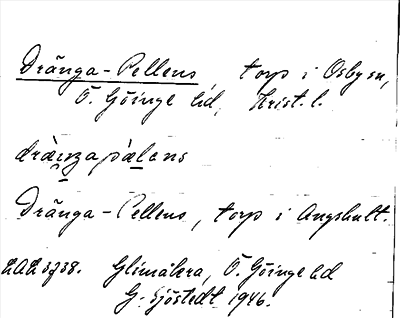 Dränga-Pellens, torp i Osby sn,
Ö. Göinge hd, Krist. l.
dràŋgapàlens
Dränga-Pellens, torp i Angshult.
LAL 3738. Glimåkra, Ö. Göinge hd
G. Sjöstedt 1946.